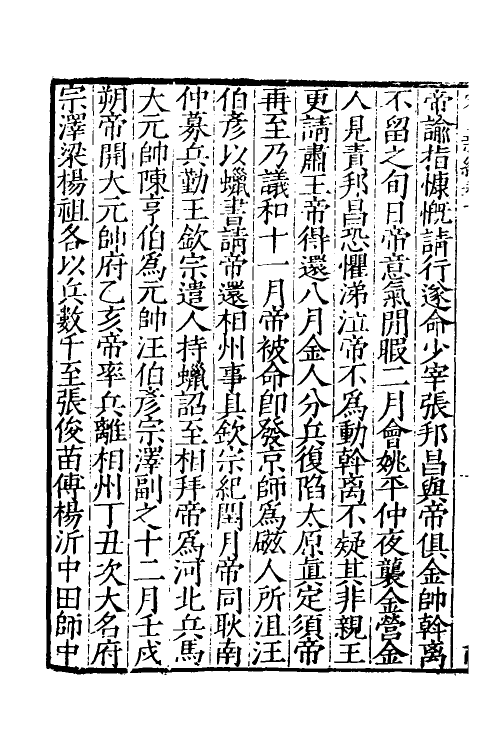 帝諭指慷慨請行遂命少宰張邦昌與帝俱金帥斡离
不留之旬日帝意氣閒暇二月會姚平仲夜襲金營金
人見責邦昌恐懼涕泣帝不為動斡离不疑其非親王
更請肅王帝得還八月金人分兵復陷太原真定須帝
再至乃議和十一月帝被命即發京師為磁人所沮汪
伯彥以蠟書請帝還相州事具欽宗紀閏月帝同耿南
仲募兵勤王欽宗遣人持蠟詔至相拜帝為河北兵馬
大元帥陳亨伯為元帥汪伯彥宗澤副之十二月壬戌
朔帝開大元帥府乙亥帝率兵離相州丁丑次大名府
宗澤梁楊祖各以兵數千至張俊苗傅楊沂中田師中